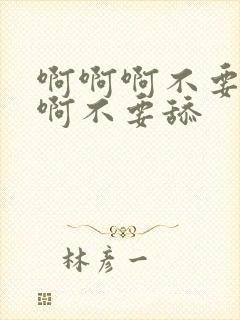 啊啊啊不要
啊不要舔
林彦一